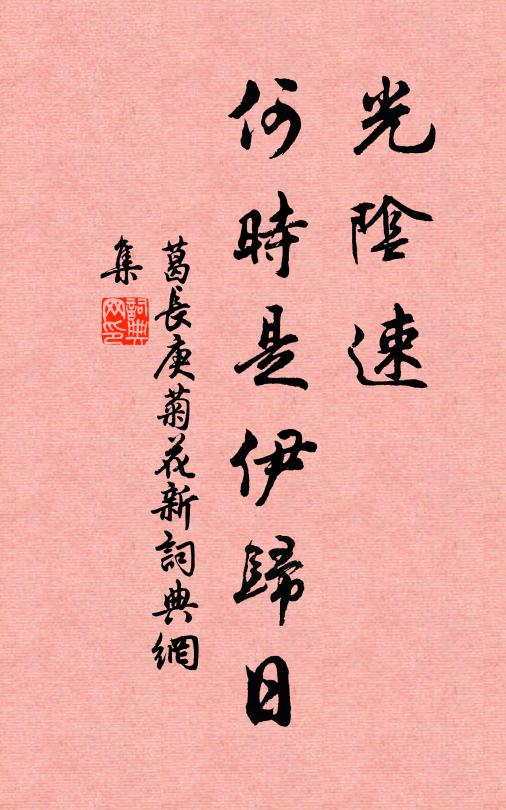 光陰速
何時是伊歸日
葛長庚菊花新詞典網
集
詞典網印